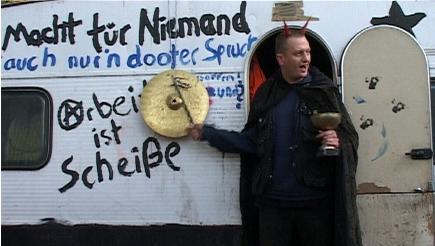 Macht für Niemand
auch nur'n dooter Spruch
Arbeit
ist
Scheiße